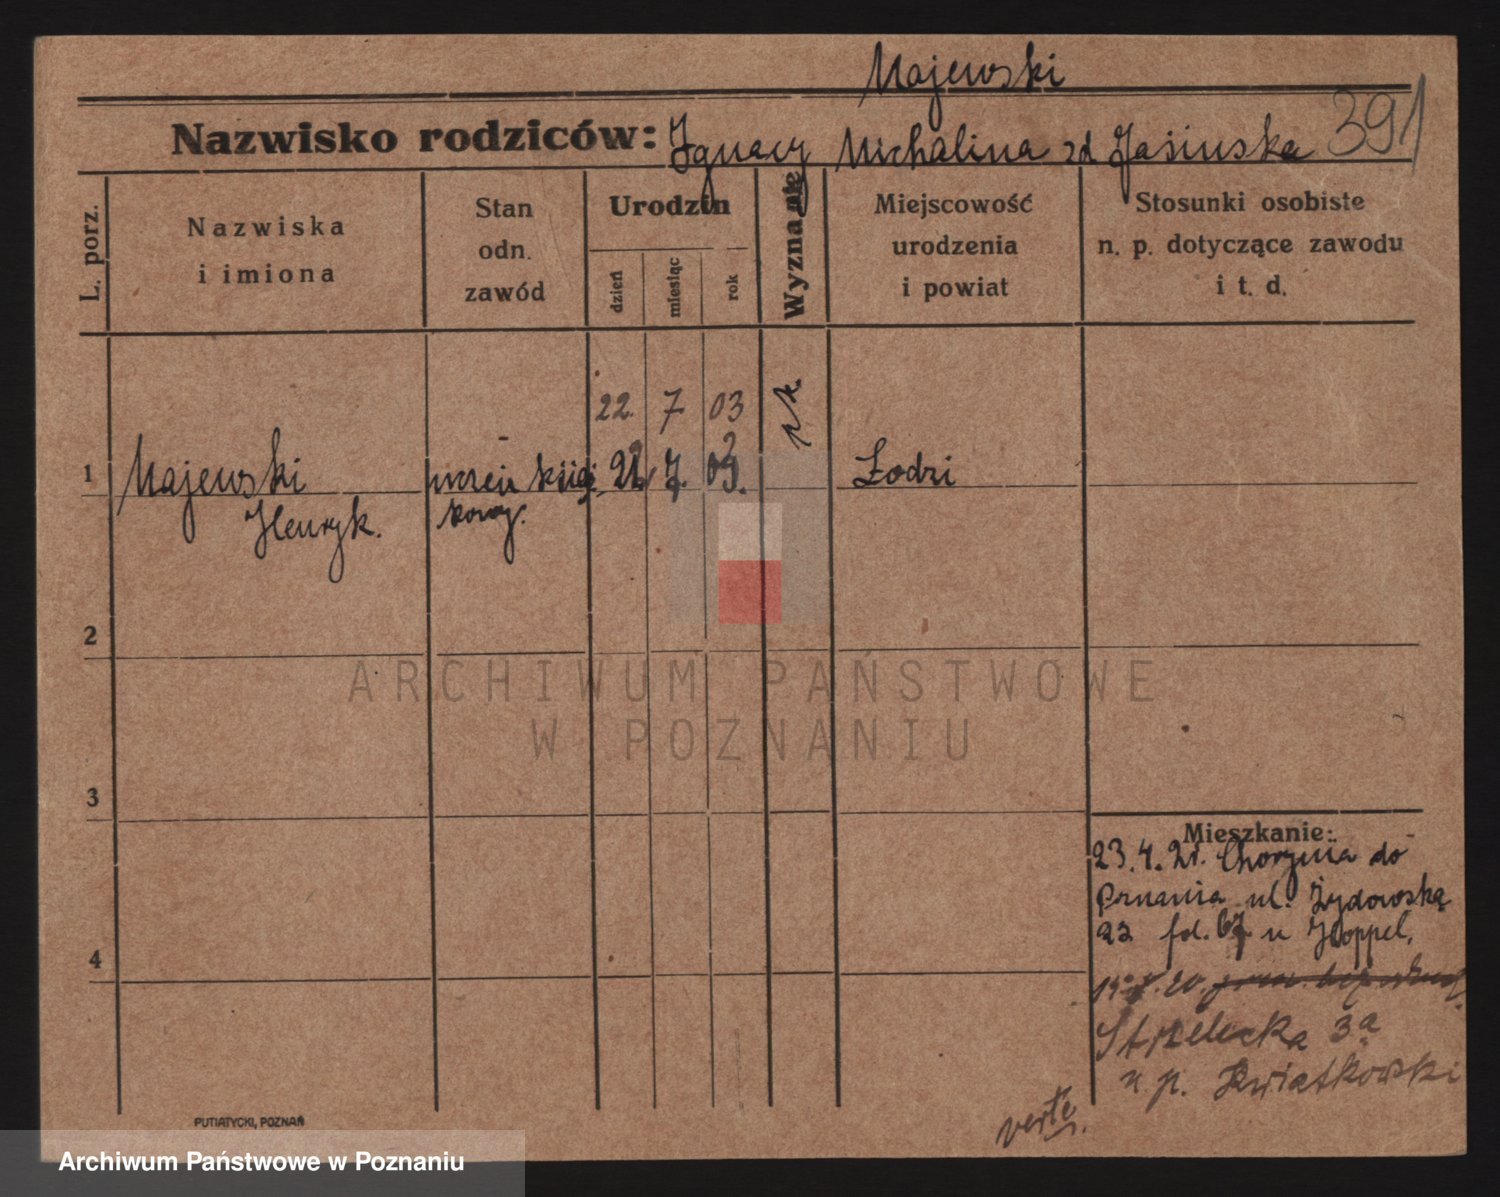 Majewski
Nazwisko rodziców: Ignacy Michalina zd Jasińska 391
L. porz.
Nazwiska
i imiona
Stan
odn.
zawód
Urodzin
dzień
miesiąc
rok
Wyznanie
Miejscowość
urodzenia
i powiat
Stosunki osobiste
n. p. dotyczące zawodu
i t. d.
22. 7 03
1 Majewski uczeń księg 7. Łodzi
Henryk. kowy.
2
3
4
ARCHIWUM PAŃSTWOWE
W POZNANIU
Mieszkanie:
23.4.21. Chorynia do
Poznania ul. Żydowska
22 u Hoppel.
Strzelecka 3a
u p. Kwiatkowski
verte
PUTIATYCKI, POZNAŃ
Archiwum Państwowe w Poznaniu